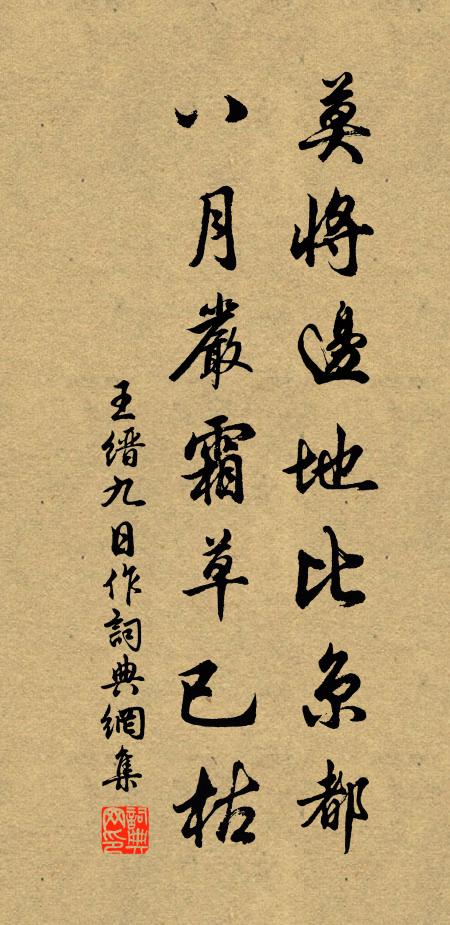 莫將邊地比京都
八月嚴霜草已枯
王縉九日作詞典網集
詞典网印